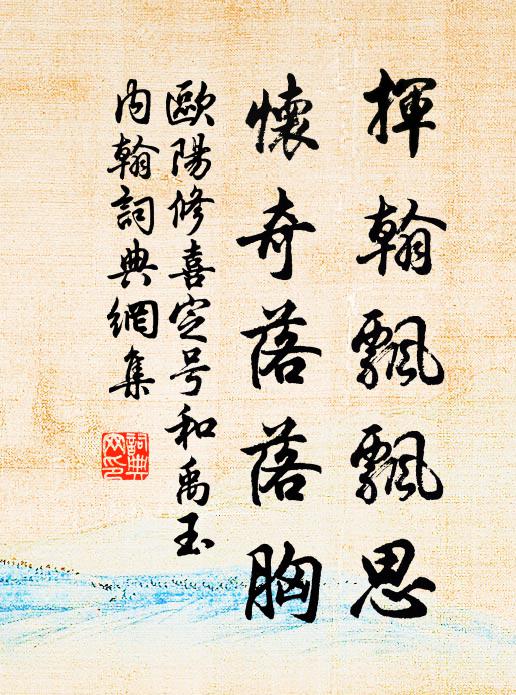 揮翰飄飄思
懷奇落落胸
歐陽修喜定号和禹玉
内翰詞典網集
詞典網印